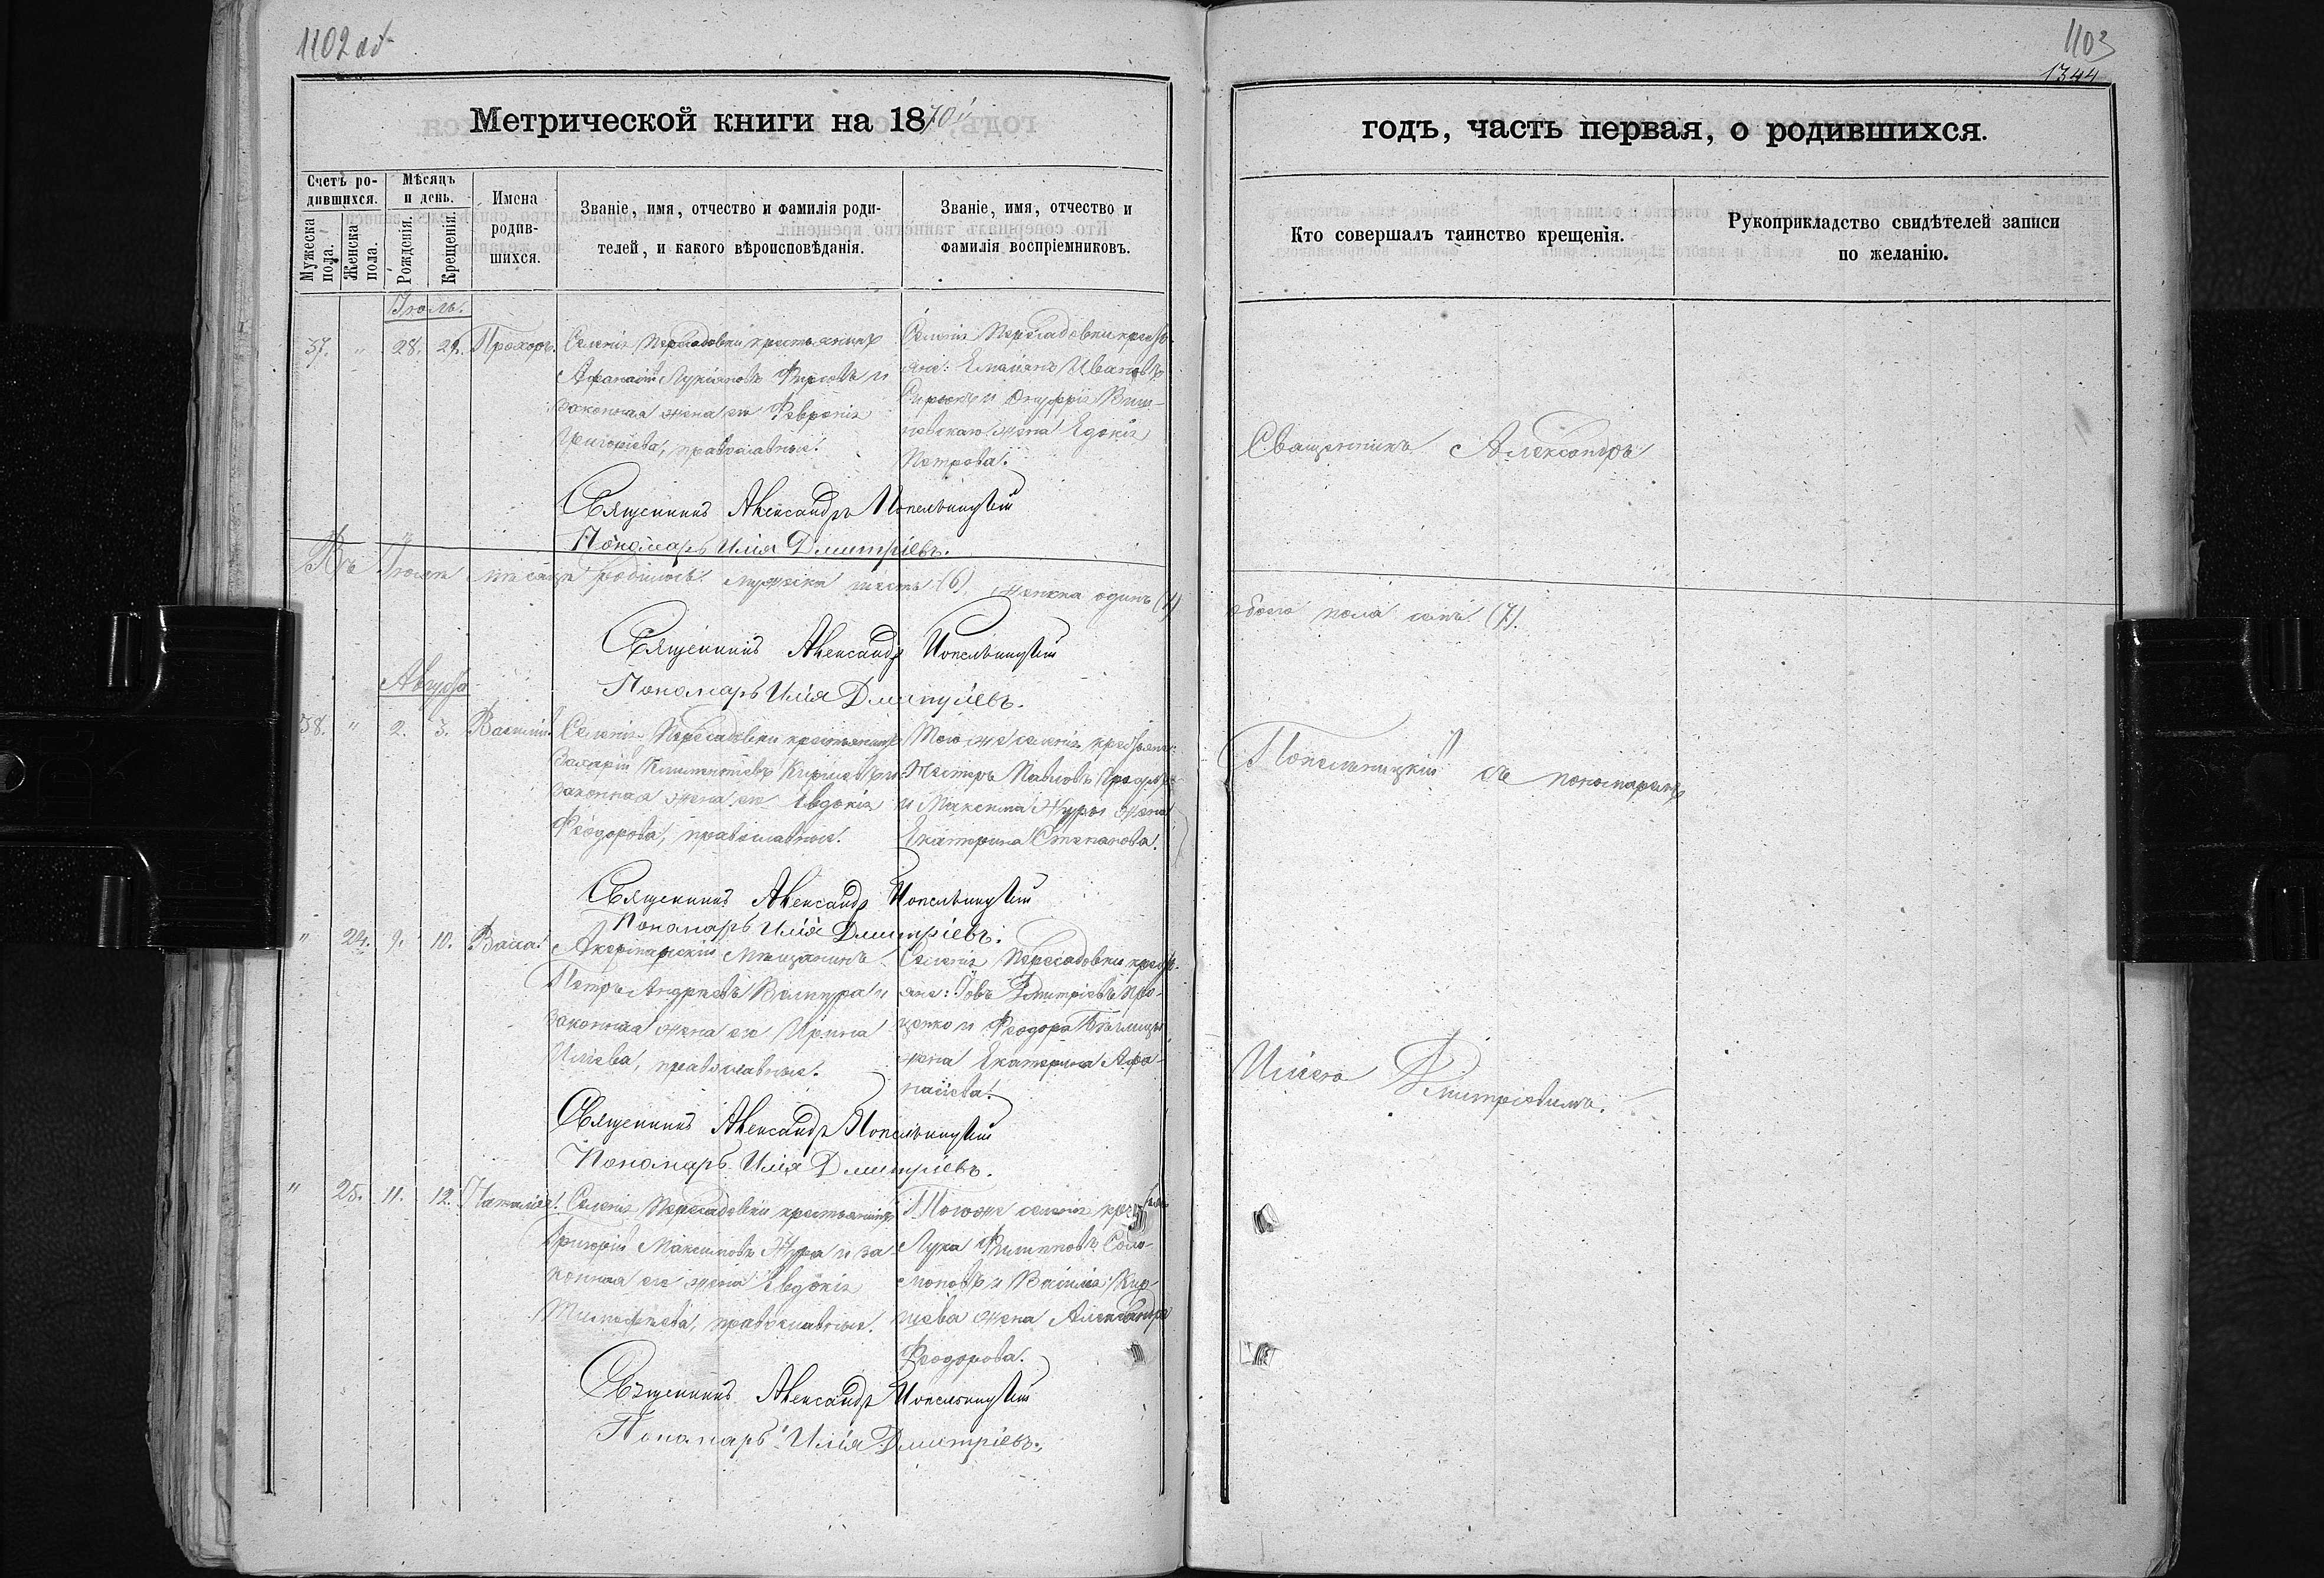 1102 об
Метрической книги на 1870
Счетъ ро-
дившихся.
Мужеска
пола.
Женска
пола.
Мѣсяцъ
и день.
Рожденія.
Крещенія.
Имена
родив-
шихся.
Званіе, имя, отчество и фамилія роди-
телей, и какого вѣроисповѣданія.
Званіе, имя, отчество и
фамилія воспріемниковъ.
Іюль.
37. " 28. 29. Прохоръ.
Селенія Пересадовки крестьянинъ
Афанасій Лукіяновъ и
законная жена его Феѵронія
Григорьева, православные.
Селенія Пересадовки кресть-
яне: Емаліянъ Ивановъ
и Онуфрія Виш-
невскаго жена Евдокія
Петрова.
Священникъ Александръ Попельницкій
Пономарь Илія Димитріевъ.
Въ Іюлѣ мѣсяцѣ родилось: мужеска шесть (6), женска одинъ (1)
Священникъ Александръ Попельницкій
Пономарь Илія Димитріевъ.
Августъ
38. " 2. 3. Василій.
Селенія Пересадовки крестьянинъ
Захарій Климентіевъ и
законная жена его Евдокія
Феодорова, православные.
Того же селенія крестьяне:
Несторъ Павловъ
и Максима Журы жена
Екатерина Стефанова.
Священникъ Александръ Попельницкій
Пономарь Илія Димитріевъ.
" 24. 9. 10. Васса.
мѣщанинъ
Петръ Андреевъ и
законная жена его Ирина
Иліева, православные.
Селенія Пересадовки кресть-
яне: Іовъ Димитріевъ Про-
ценко и Феодора
жена Екатерина Афа-
насіева.
Священникъ Александръ Попельницкій
Пономарь Илія Димитріевъ.
" 25. 11. 12. Наталія.
Селенія Пересадовки крестьянинъ
Григорій Максимовъ Жура и за-
конная его жена Евдокія
Тимофеева, православные.
Того же селенія крестьяне
Лука Филипповъ Соло-
моновъ и Василія Кир-
жена Александра
Феодорова.
Священникъ Александръ Попельницкій
Пономарь Илія Димитріевъ.
1103
1344
годъ, часть первая, о родившихся.
Кто совершалъ таинство крещенія.
Рукоприкладство свидѣтелей записи
по желанію.
Священникъ Александръ
обоего пола семь (7).
Попельницкій съ пономаремъ
Иліею Димитріевымъ.